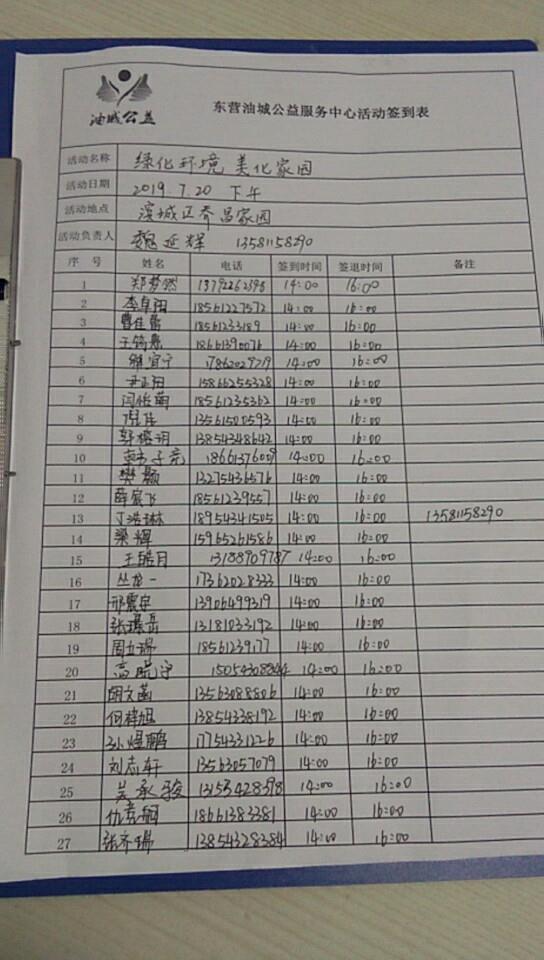 油城公益
东营油城公益服务中心活动签到表
活动名称 绿化环境 美化家园
活动日期 2019.7.20 下午
活动地点 滨城正乔昌家园
活动负责人 魏延辉 13581158290
序 号 姓名 电话 签到时间 签退时间 备注
1 郑梦然 13792262596 14:00 16:00
2 李卓阳 18561227572 14:00 16:00
3 曹佳蕾 18561233189 14:00 16:00
4 18661390076 14:00 16:00
5 17862029719 14:00 16:00
6 尹正阳 15866255328 14:00 16:00
7 闫怡萌 18561235362 14:00 16:00
8 倪佳 13561500593 14:00 16:00
9 郭榕玥 13854348642 14:00 16:00
10 韩子亮 1866137600 14:00 16:00
11 樊颢 13275436576 14:00 16:00
12 薛宸飞 18561239557 14:00 16:00
13 丁浩琳 18954341505 14:00 16:00 13581158290
14 梁辉 15965261586 14:00 16:00
15 王皓月 13188909787 14:00 16:00
16 丛龙一 17362028333 14:00 16:00
17 邢震宇 13906499319 14:00 16:00
18 张瑾岳 13181033192 14:00 16:00
19 周立瑞 18561239177 14:00 16:00
20 高晓宇 15054308344 14:00 16:00
21 胡文菡 13563088806 14:00 16:00
22 何梓旭 13854338192 14:00 16:00
23 孙煜鹏 17754331226 14:00 16:00
24 刘志轩 13563057079 14:00 16:00
25 吴承骏 13153428398 14:00 16:00
26 18661383381 14:00 16:00
27 张齐瑞 13854328384 14:00 16:00